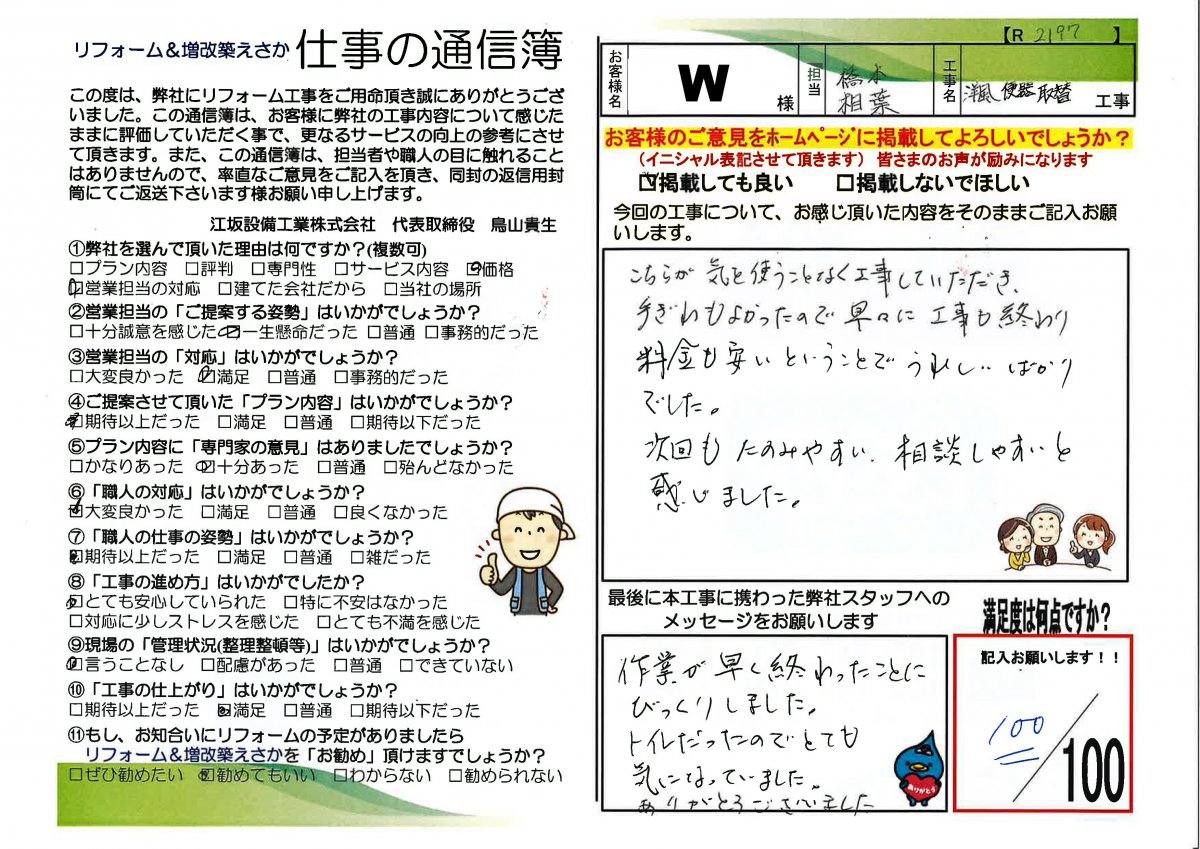 リフォーム&増改築えさか 仕事の通信簿
この度は、弊社にリフォーム工事をご用命頂き誠にありがとうござ
いました。この通信簿は、お客様に弊社の工事内容について感じた
ままに評価していただく事で、更なるサービスの向上の参考にさせ
て頂きます。また、この通信簿は、担当者や職人の目に触れること
はありませんので、率直なご意見をご記入を頂き、同封の返信用封
筒にてご返送下さいます様お願い申し上げます。
江坂設備工業株式会社 代表取締役 鳥山貴生
①弊社を選んで頂いた理由は何ですか?(複数可)
□プラン内容 □評判 □専門性 □サービス内容 ☑価格
☑営業担当の対応 □建てた会社だから □当社の場所
②営業担当の「ご提案する姿勢」はいかがでしょうか?
□十分誠意を感じた ☑一生懸命だった □普通 □事務的だった
③営業担当の「対応」はいかがでしょうか?
□大変良かった ☑満足 □普通 □事務的だった
④ご提案させて頂いた「プラン内容」はいかがでしょうか?
☑期待以上だった □満足 □普通 □期待以下だった
⑤プラン内容に「専門家の意見」はありましたでしょうか?
□かなりあった ☑十分あった □普通 □殆んどなかった
⑥「職人の対応」はいかがでしょうか?
☑大変良かった □満足 □普通 □良くなかった
⑦「職人の仕事の姿勢」はいかがでしょうか?
☑期待以上だった □満足 □普通 □雑だった
⑧「工事の進め方」はいかがでしたか?
☑とても安心していられた □特に不安はなかった
□対応に少しストレスを感じた □とても不満を感じた
⑨現場の「管理状況(整理整頓等)」はいかがでしょうか?
☑言うことなし □配慮があった □普通 □できていない
⑩「工事の仕上がり」はいかがでしょうか?
□期待以上だった ☑満足 □普通 □期待以下だった
⑪もし、お知合いにリフォームの予定がありましたら
リフォーム&増改築えさかを「お勧め」頂けますでしょうか?
□ぜひ勧めたい ☑勧めてもいい □わからない □勧められない
【R 2197 】
お客様名 W 様 担当 橋本 相葉 工事名 洋風便器取替 工事
お客様のご意見をホームページに掲載してよろしいでしょうか?
(イニシャル表記させて頂きます) 皆さまのお声が励みになります
☑掲載しても良い □掲載しないでほしい
今回の工事について、お感じ頂いた内容をそのままご記入お願
いします。
こちらが気を使うことなく工事していただき、
手ぎわもよかったので早々に工事も終わり
料金も安いということでうれしいばかり
でした。
次回もたのみやすい、相談しやすいと
感じました。
最後に本工事に携わった弊社スタッフへの
メッセージをお願いします
作業が早く終わったことに
びっくりしました。
トイレだったのでとても
気になっていました。
ありがとうございました
ありがとう
満足度は何点ですか?
記入お願いします!!
100/100